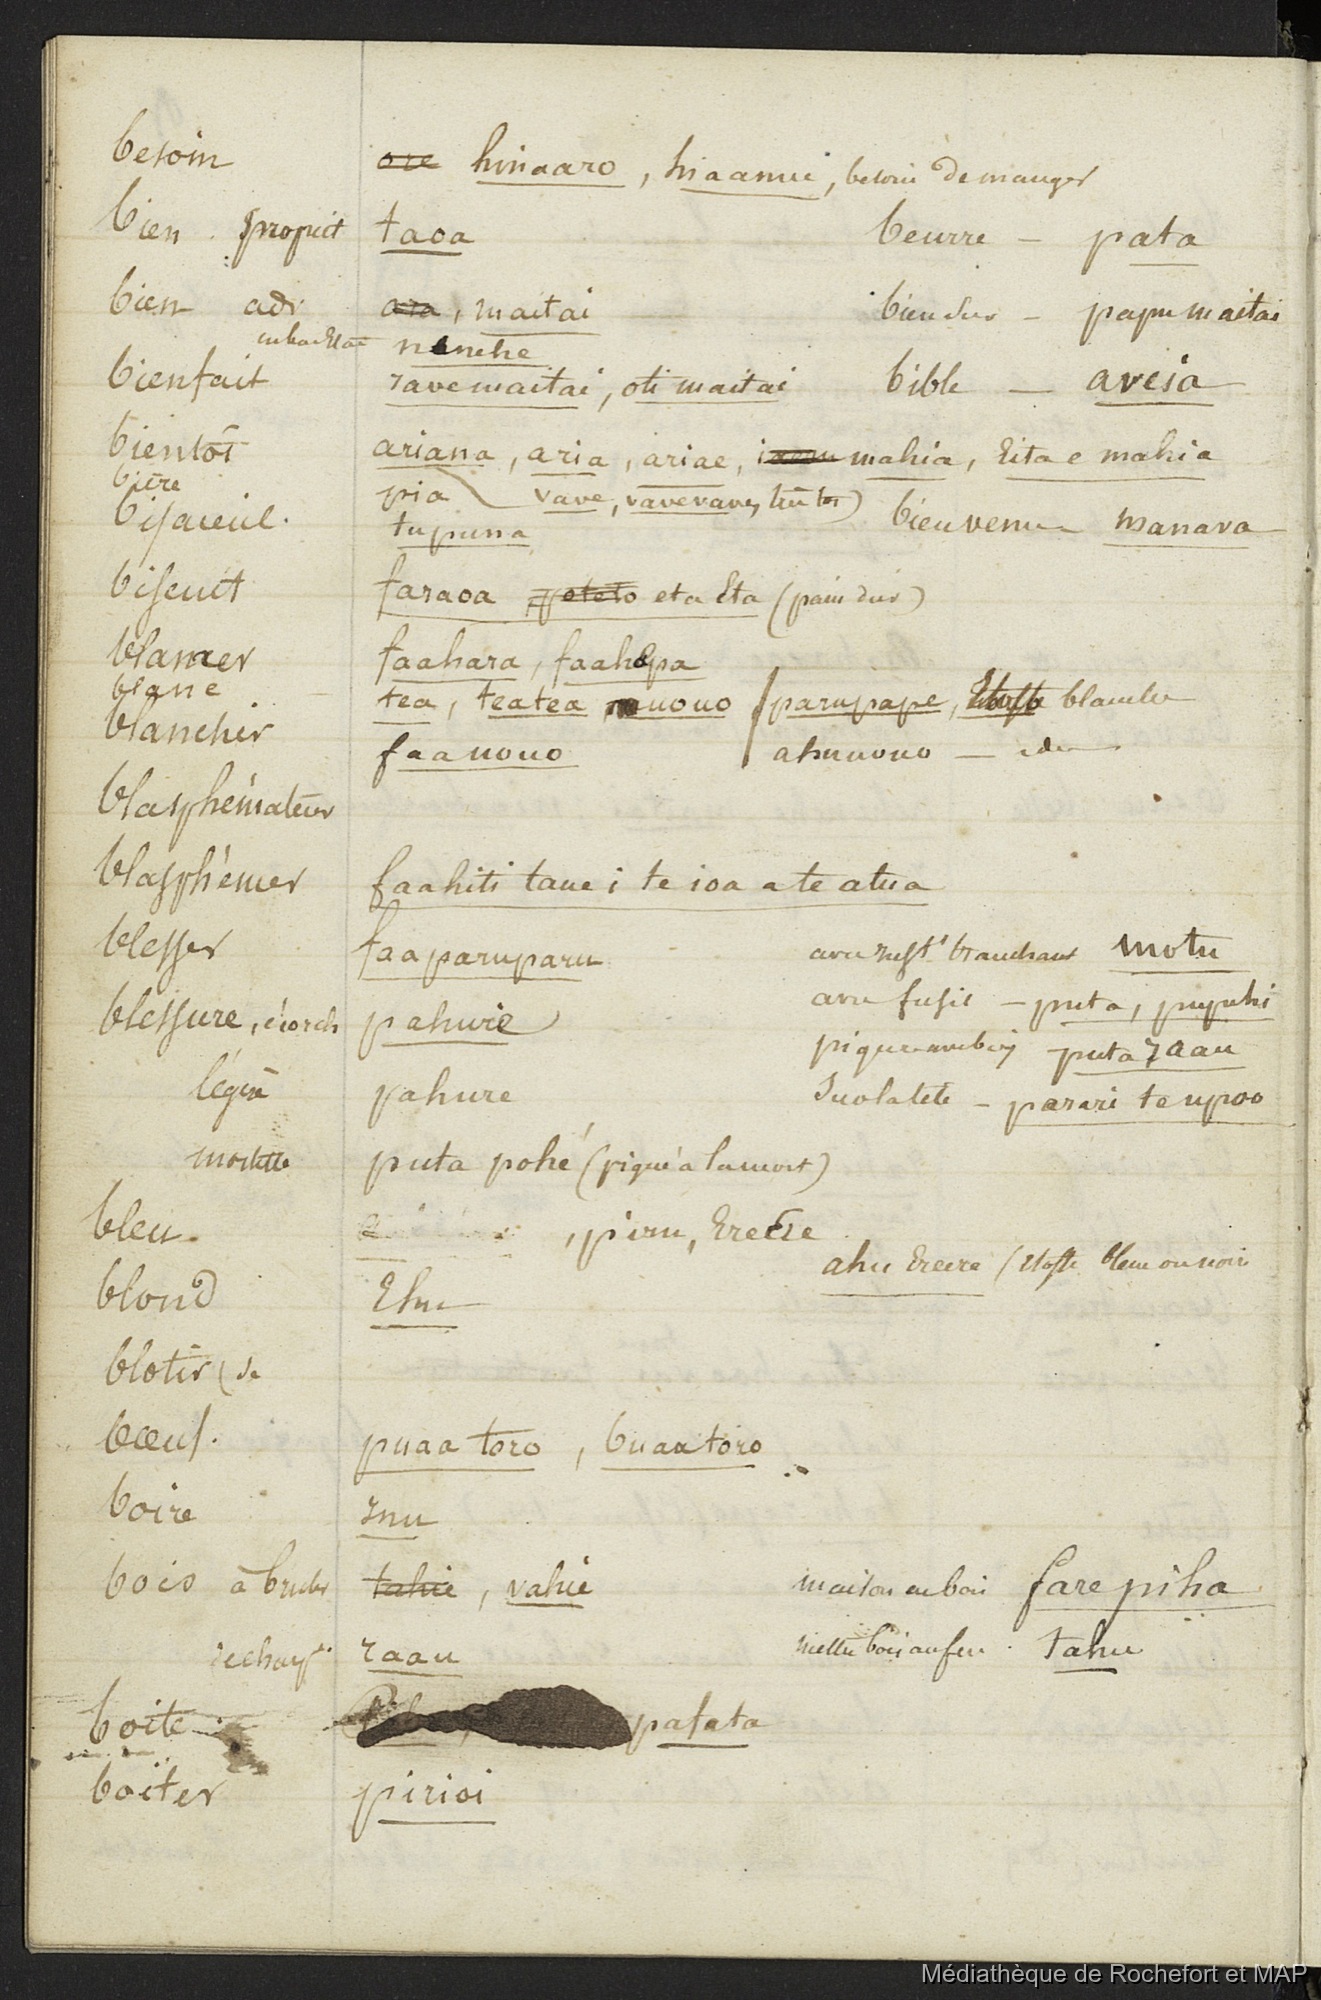 besoin ore hinaaro, hiaamui, besoin de manger
bien propriét taoa beurre - pata
bien adv ara, maitai bien sur - papu maitai
en bon Etat nenehe
bienfait ravemaitai, oti maitai bible - aveia
bientôt ariana, aria, ariae, mahia, Eita e mahia
bière pia vave, vavevave, très tot)
bisaieul. tupuna bienvenu - manava
biscuit faraoa poteto eta Eta (pain dur)
blamer faahara, faahapa
blanc tea, teatea, uouo parupape, Etoffe blanche
blanchir faauouo ahuuouo - idem
blasphémateur
blasphémer faahiti taue i te ioa a te atua
blesser faaparuparu avec inst^t tranchant motu
avec fusil - puta, pupuhi
blessure, écorch pahure
piqure au bois puta raau
légère pahure Sur la tete - parari te upoo
mortelle puta pohé (piqué à la mort)
bleu. , piru, Ereere
ahu Ereere (Etoffe bleue ou noir
blond Ehu
blotir (se
bœuf. puaa toro, buaatoro
boire inu
bois à bruler tahie, vahie maison en bois farepiha
de charp^t raau mettre bois au feu. tahu
boite patata
boiter pirioi
Médiathèque de Rochefort et MAP